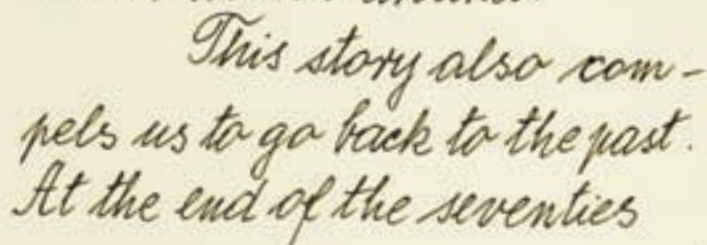 This story also com-
pels us to go back to the past.
At the end of the seventies